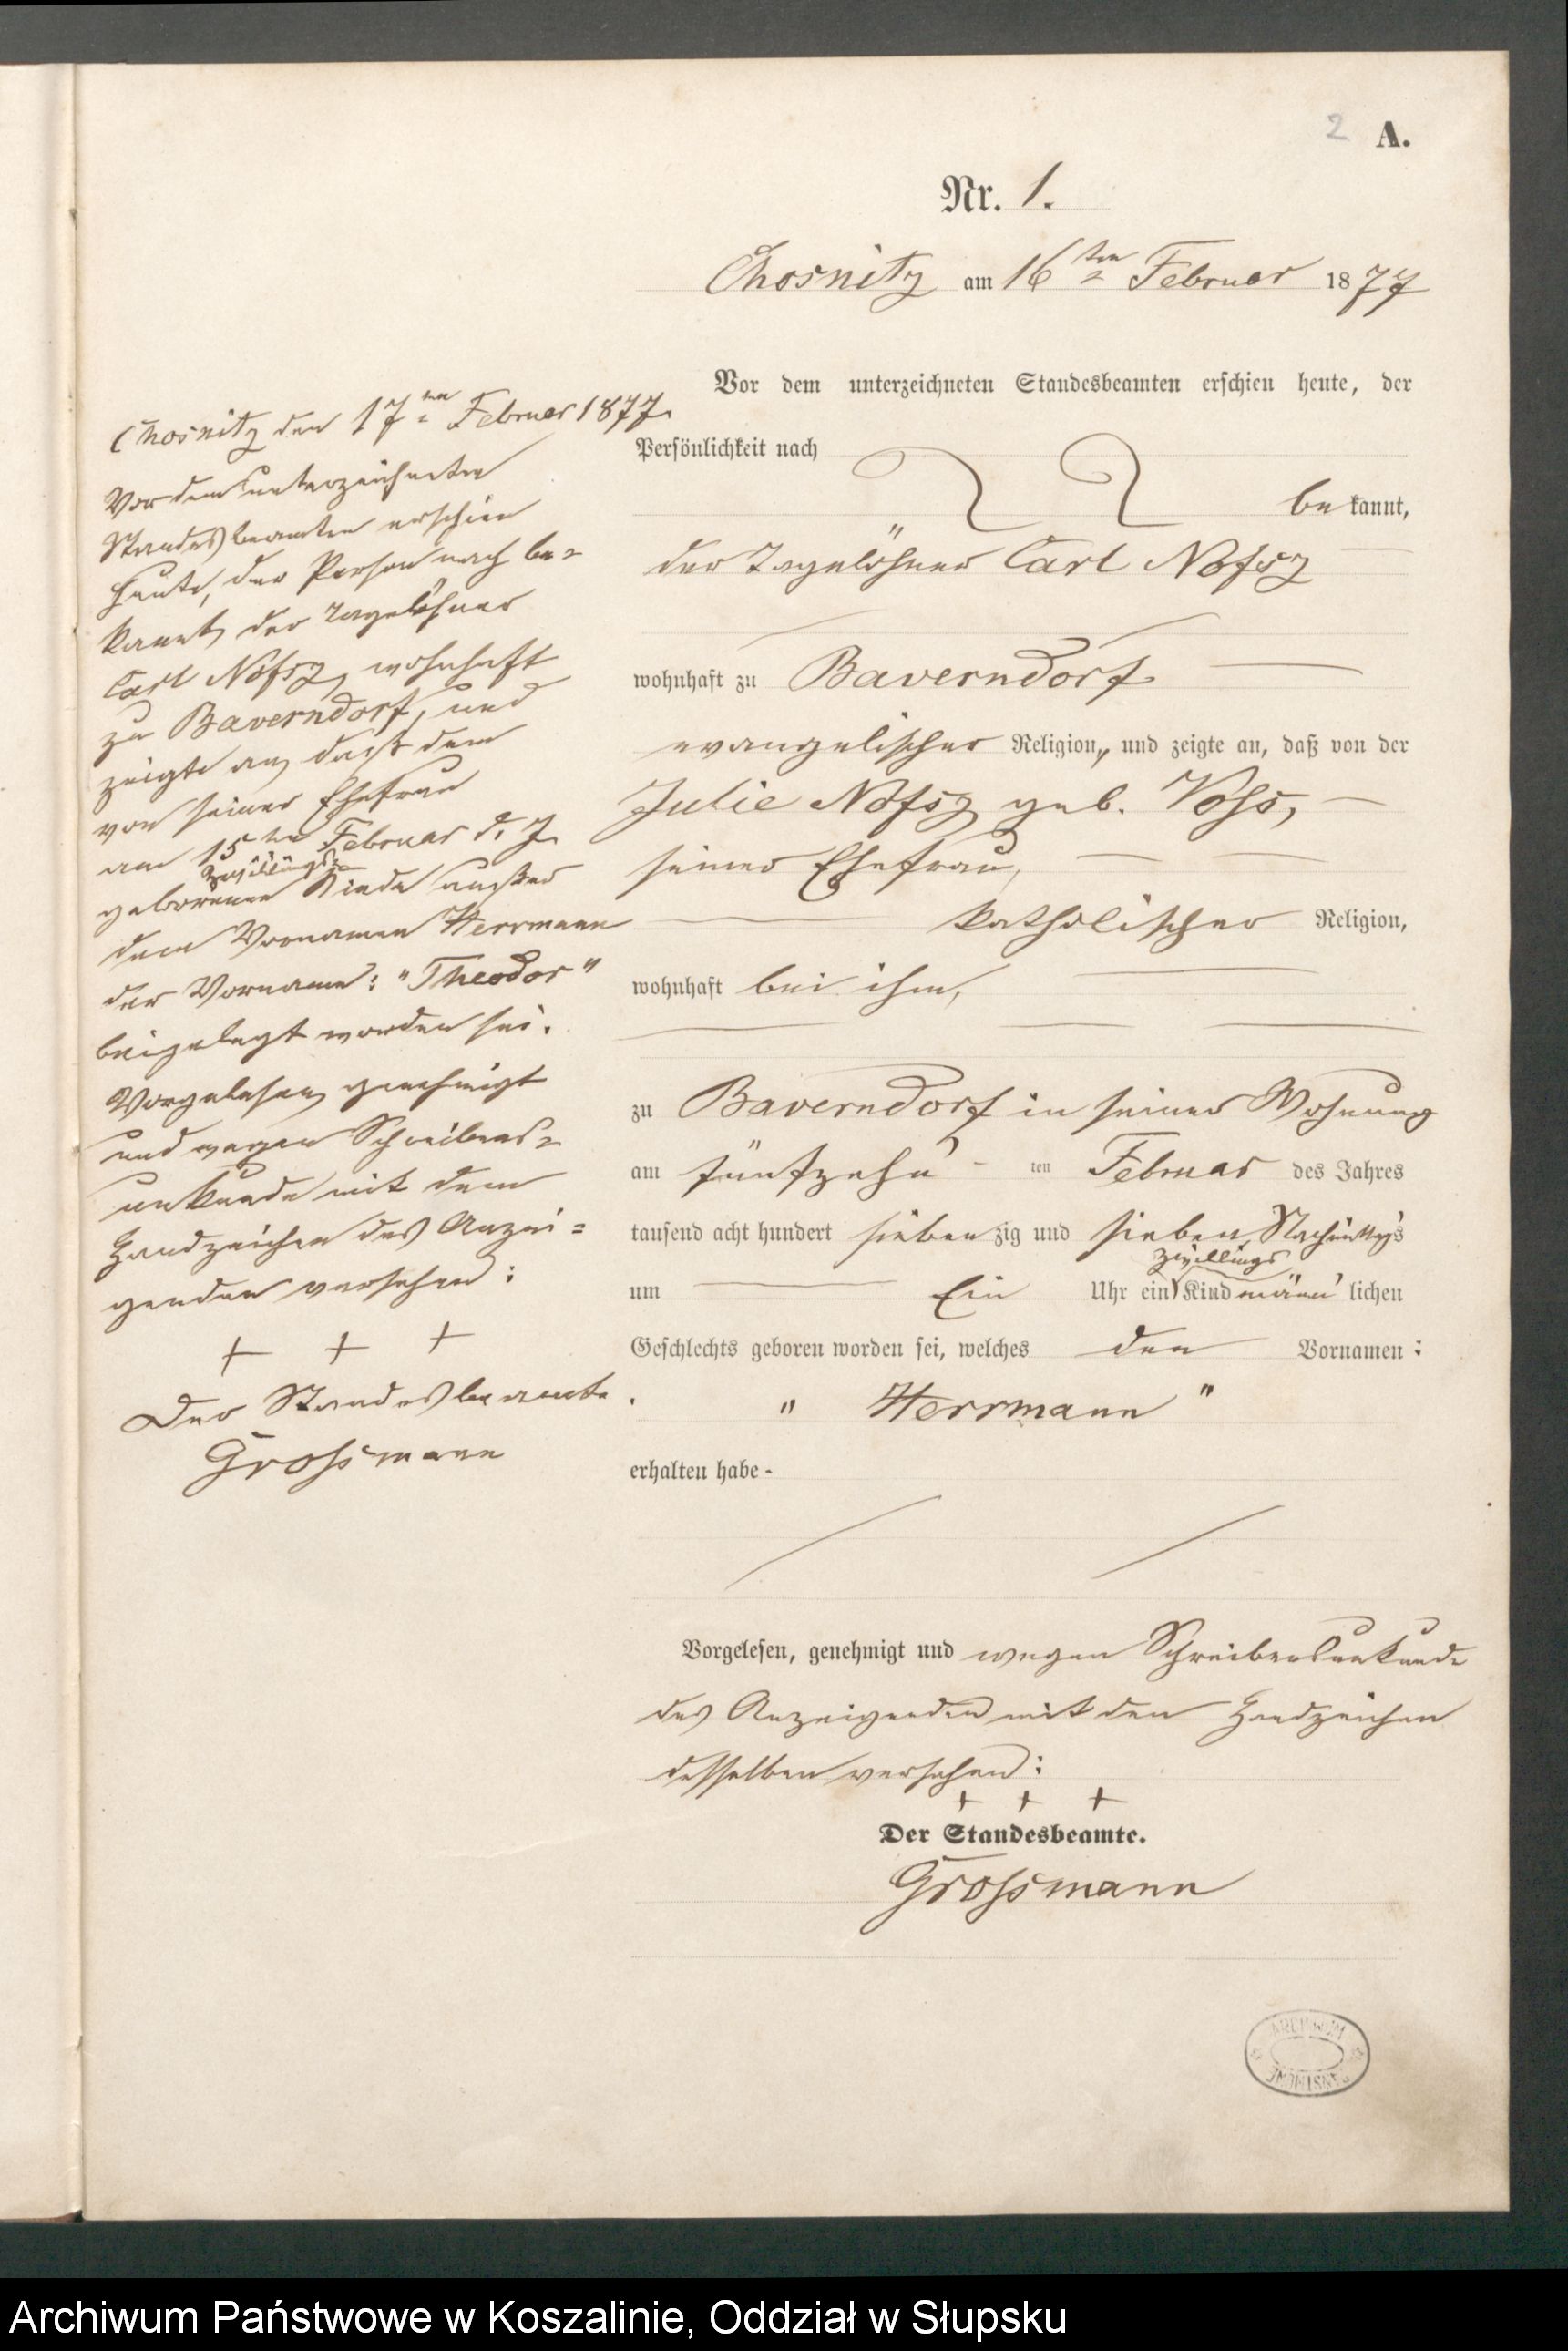 2 A.
Nr. 1.
Chosnitz am 16ten Februar 1877
Vor dem unterzeichneten Standesbeamten erschien heute, der
Persönlichkeit nach
bekannt,
der Tagelöhner Carl Nofsz
wohnhaft zu Baverndorf
evangelischer Religion, und zeigte an, daß von der
Julie Nofsz geb. Vohs,
seiner Ehefrau,
katholischer Religion,
wohnhaft bei ihm,
zu Baverndorf in seiner Wohnung
am fünfzehn ten Februar des Jahres
tausend acht hundert sieben zig und sieben, Nachmittags
um Ein Uhr ein Zwillings Kind männ lichen
Geschlechts geboren worden sei, welches den Vornamen:
" Herrmann "
erhalten habe.
Vorgelesen, genehmigt und wegen Schreibensunkunde
des Anzeigenden mit den Handzeichen
desselben versehen:
+ + +
Der Standesbeamte.
Grossmann
Chosnitz den 17ten Februar 1877.
Vor dem unterzeichneten
Standesbeamten erschien
heute, der Person nach be=
kannt, der Tagelöhner
Carl Nofsz, wohnhaft
zu Baverndorf, und
zeigte an, daß dem
von seiner Ehefrau
am 15ten Februar d. J.
geborenen Zwillings= Kinde außer
dem Vornamen Herrmann
der Vorname: "Theodor"
beigelegt worden sei.
Vorgelesen, genehmigt
und wegen Schreibens=
unkunde mit dem
Handzeichen des Anzei=
genden versehen:
+ + +
Der Standesbeamte.
Grossmann
ARCHIWUM
Archiwum Państwowe w Koszalinie, Oddział w Słupsku